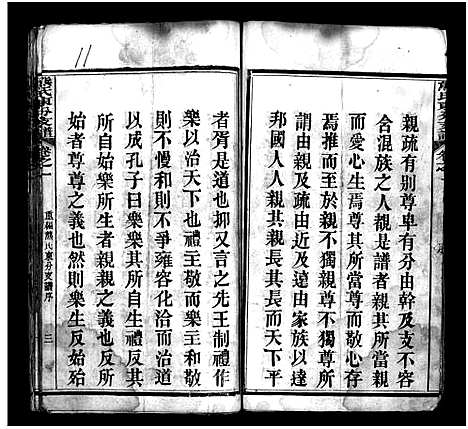 親疏有別尊卑有分由幹及支不使
舍混族之人覩是譜者親其所當親
而愛心生焉尊其所當尊而敬心存
焉推而至於親不獨親尊不獨尊所
謂由親及疏由近及遠由家族以達
邦國人人親其親長其長而天下平
者胥是道也抑又言之先王制禮作
樂以治天下也禮主敬而樂主和敬
則不慢和則不爭雍容化洽而治道
以成孔子曰樂樂其所自生禮反其
所自始樂所生者親親之義也反所
始者尊尊之義也然則樂生反始殆
重補熊氏東分支譜序
三
11